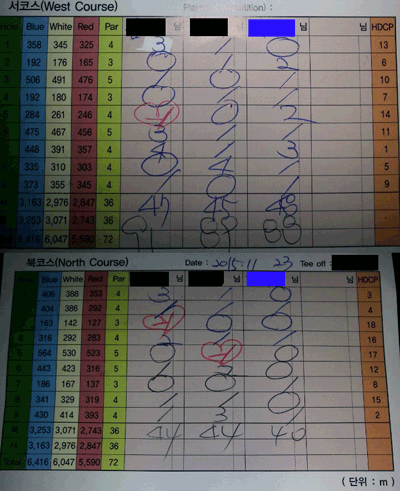 서코스(West Course)
Hole Blue White Red Par 님 님 님 님 HDCP
1 358 345 325 4 3 / 0 13
2 192 176 165 3 0 / 2 6
3 506 491 476 5 / / / 10
4 192 180 174 3 0 / / 7
5 284 261 246 4 -1 0 2 14
6 475 467 456 5 3 / / 11
448 391 357 4 / / 3 1
335 310 303 4 0 4 / 5
373 355 345 4 / 0 / 9
3,163 2,976 2,847 36 45 45 48
3,253 3,071 2,743 36
6,416 6,047 5,590 72 91 89 88
북코스(North Course) Date : 2015. 11 23 Tee off :
Blue White Red Par 님 님 님 님 HDCP
406 388 353 4 3 / 0 3
404 386 292 4 / / / 4
163 142 127 3 -1 0 0 18
4 316 292 283 4 / / 16
564 530 523 5 0 -1 0 17
443 423 316 5 / 2 / 12
7 186 167 137 3 0 0 0 8
8 341 329 319 4 / / 0 15
9 430 414 393 4 / 3 / 2
북 3,253 3,071 2,743 36 44 44 40
서 3,163 2,976 2,847 36
Total 6,416 6,047 5,590 72
(단위 : m)